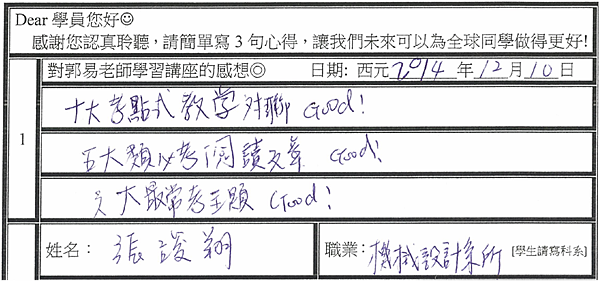 Dear 學員您好☺
感謝您認真聆聽，請簡單寫 3 句心得，讓我們未來可以為全球同學做得更好!
對郭易老師學習講座的感想◎ 日期: 西元 2014 年 12 月 10 日
1
十大考點式教学 对聯 Good!
五大類必考閱讀文章 Good!
大最常考主題 Good!
姓名： 張誼翔
職業： 機械設計系所 [學生請寫科系]